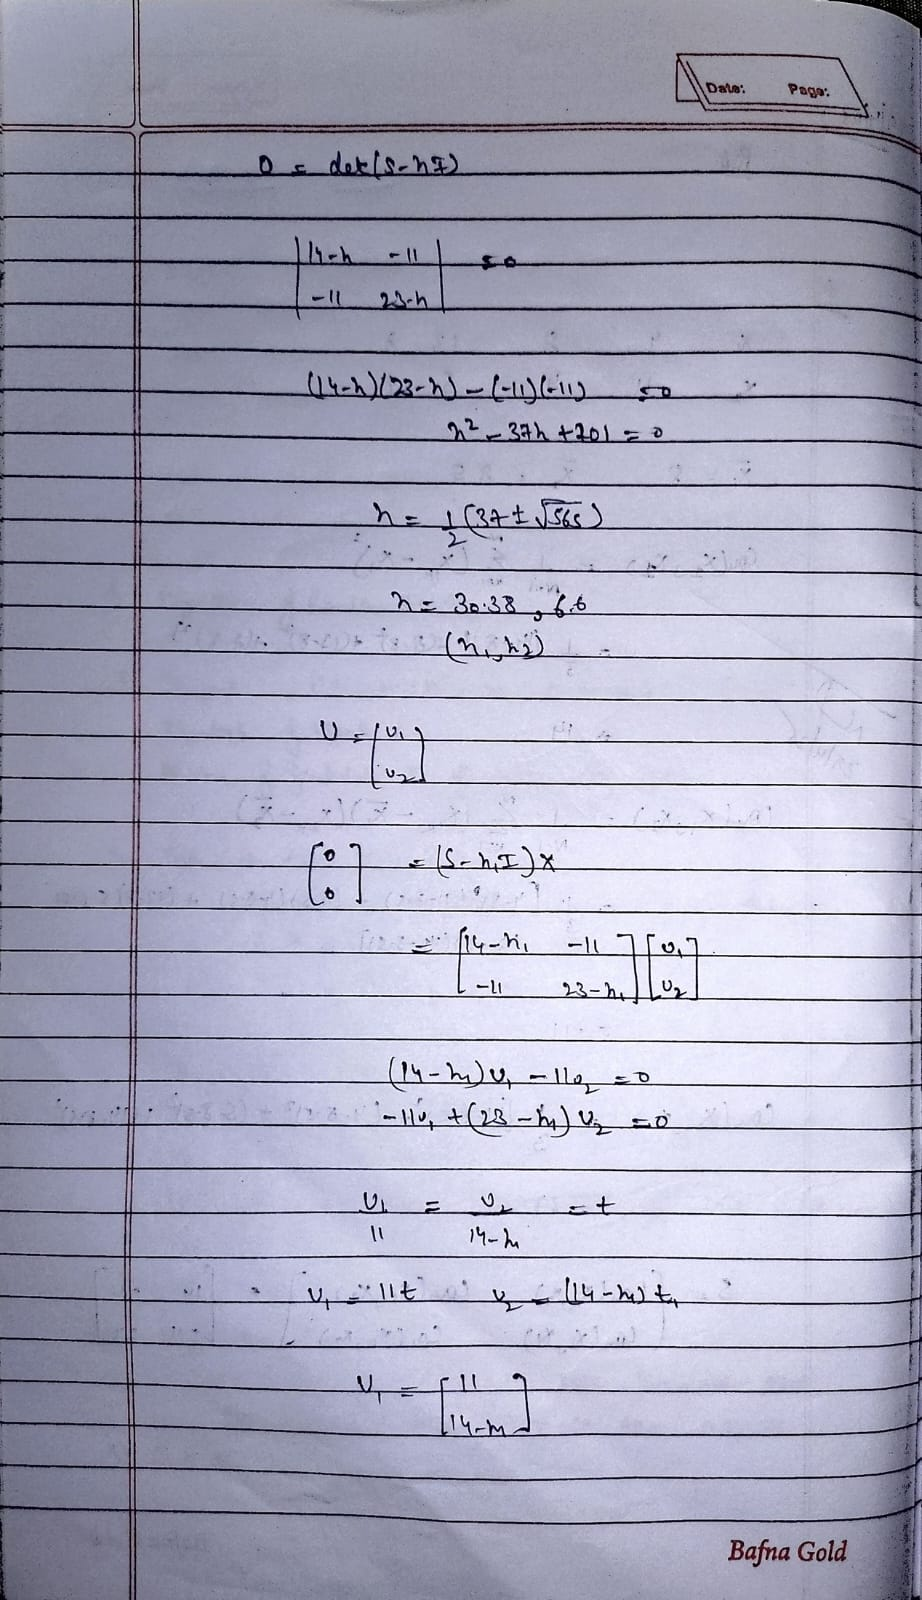 Date: Page:
0 = det(S-λI)
| 14-λ -11 | = 0
| -11 23-λ |
(14-λ)(23-λ) - (-11)(-11) = 0
λ² - 37λ + 201 = 0
λ = 1/2 (37 ± √565)
λ = 30.38, 6.6
(λ₁, λ₂)
U = [ U₁
U₂ ]
[ 0
0 ] = (S-λ₁I)X
= [ 14-λ₁ -11 ] [ U₁ ]
[ -11 23-λ₁ ] [ U₂ ]
(14-λ₁)U₁ - 11U₂ = 0
-11U₁ + (23-λ₁)U₂ = 0
U₁/11 = U₂/14-λ₁ = t
U₁ = 11t U₂ = (14-λ₁)t,
U₁ = [ 11
14-λ₁ ]
Bafna Gold